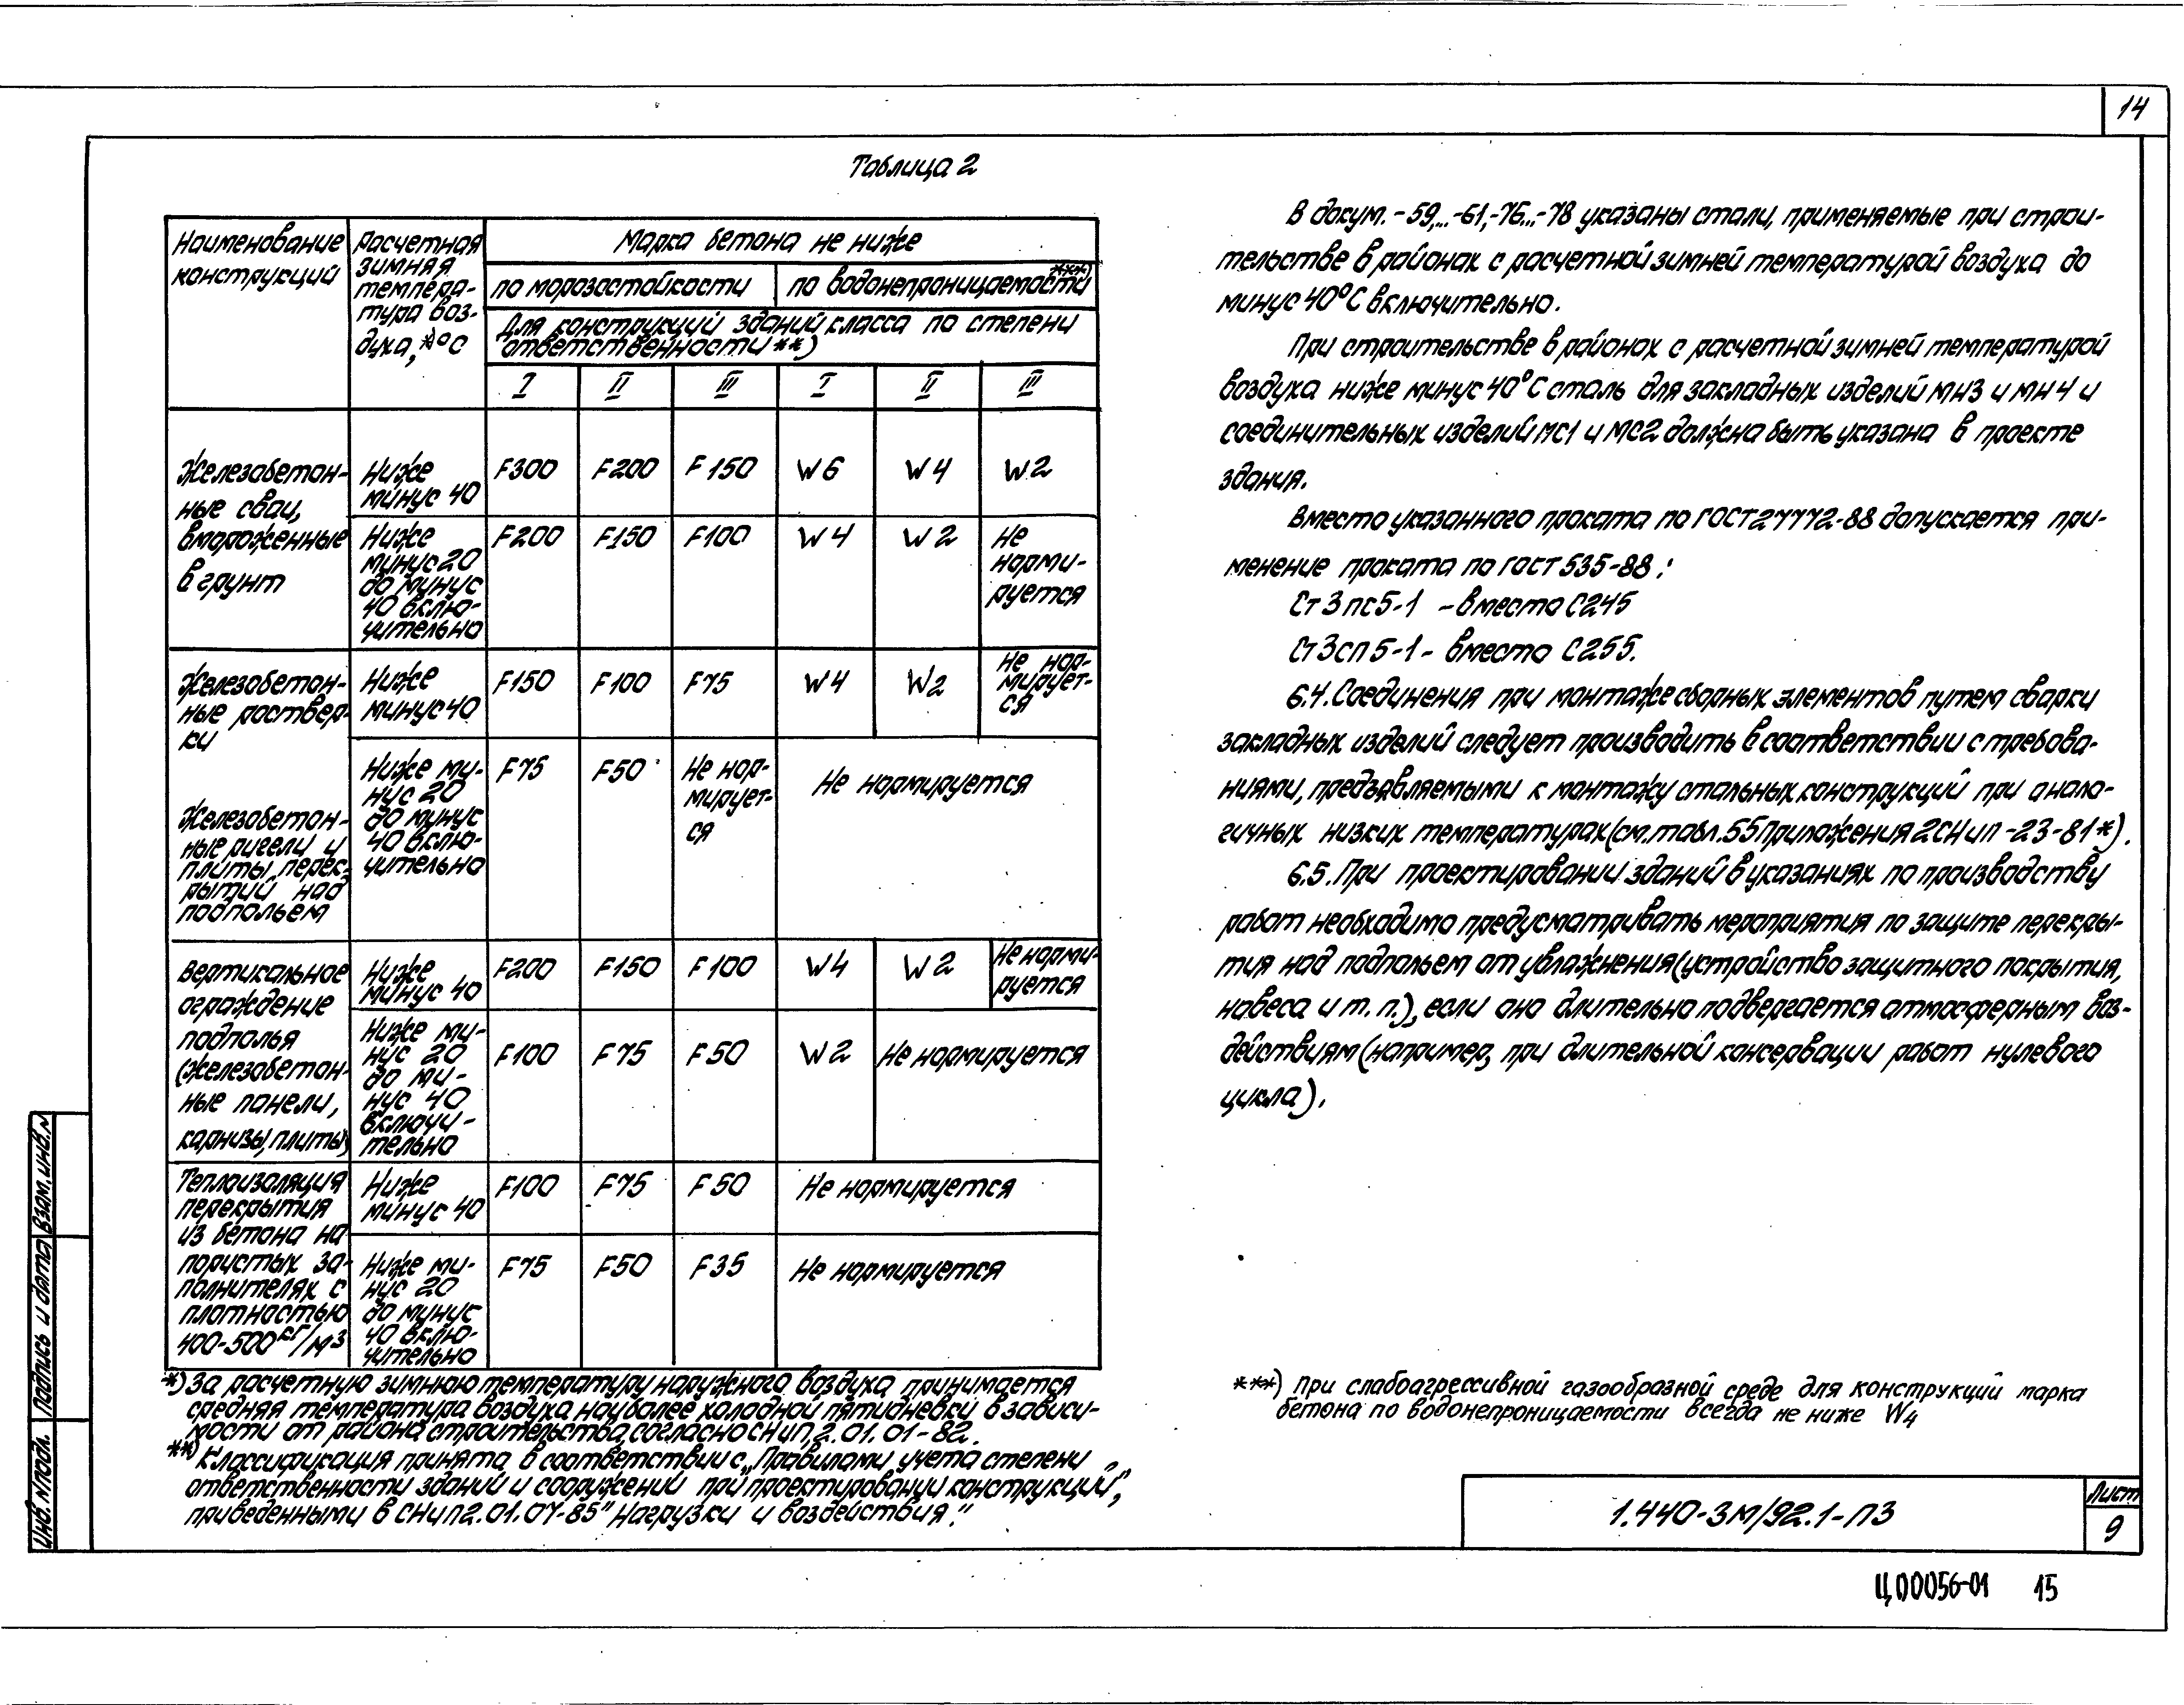 14
Таблица 2
Наименование
конструкций
Расчетная
зимняя
темпера-
тура воз-
духа,*°С
Марка бетона не ниже
по морозостойкости
по водонепроницаемости ***)
Для конструкций зданий класса по степени
ответственности **)
I II III I II III
Железобетон-
ные сваи,
вмороженные
в грунт
Ниже
минус 40
F300 F200 F150 W6 W4 W2
Ниже
минус 20
до минус
40 вклю-
чительно
F200 F150 F100 W4 W2
Не
норми-
руется
Железобетон-
ные роствер-
ки
Ниже
минус 40
F150 F100 F75 W4 W2
Не нор-
мирует-
ся
Железобетон-
ные ригели и
плиты перек-
рытий над
подпольем
Ниже ми-
нус 20
до минус
40 вклю-
чительно
F75 F50
Не нор-
мирует-
ся
Не нормируется
Вертикальное
ограждение
подполья
(железобетон-
ные панели,
карнизы, плиты)
Ниже
минус 40
F200 F150 F100 W4 W2
Не норми-
руется
Ниже ми-
нус 20
до ми-
нус 40
включи-
тельно
F100 F75 F50 W2 Не нормируется
Теплоизоляция
перекрытия
из бетона на
пористых за-
полнителях с
плотностью
400-500 кг/м3
Ниже
минус 40
F100 F75 F50 Не нормируется
Ниже ми-
нус 20
до минус
40 вклю-
чительно
F75 F50 F35 Не нормируется
*) За расчетную зимнюю температуру наружного воздуха принимается
средняя температура воздуха наиболее холодной пятидневки в зависи-
мости от района строительства, согласно СНиП 2.01.01-82.
**) Классификация принята в соответствии с „Правилами учета степени
ответственности зданий и сооружений при проектировании конструкций",
приведенными в СНиП 2.01.07-85 "Нагрузки и воздействия."
В докум. -59,...-61,-76...-78 указаны стали, применяемые при строи-
тельстве в районах с расчетной зимней температурой воздуха до
минус 40°С включительно.
При строительстве в районах с расчетной зимней температурой
воздуха ниже минус 40°С сталь для закладных изделий МН3 и МН4 и
соединительных изделий МС1 и МС2 должна быть указана в проекте
здания.
Вместо указанного проката по ГОСТ 27772-88 допускается при-
менение проката по ГОСТ 535-88:
Ст3пс5-1 - вместо С245
Ст3сп5-1 - вместо С255.
6.4. Соединения при монтаже сборных элементов путем сварки
закладных изделий следует производить в соответствии с требова-
ниями, предъявляемыми к монтажу стальных конструкций при анало-
гичных низких температурах (см. табл. 55 Приложения 2 СНиП -23-81*).
6.5. При проектировании зданий в указаниях по производству
работ необходимо предусматривать мероприятия по защите перекры-
тия над подпольем от увлажнения (устройство защитного покрытия,
навеса и т. п.), если оно длительно подвергается атмосферным воз-
действиям (например, при длительной консервации работ нулевого
цикла).
***) При слабоагрессивной газообразной среде для конструкций марка
бетона по водонепроницаемости всегда не ниже W4
1.440-3М/92.1-ПЗ
Лист
9
Ц00056-01 15
Инв. N подл. Подпись и дата Взам. инв. N